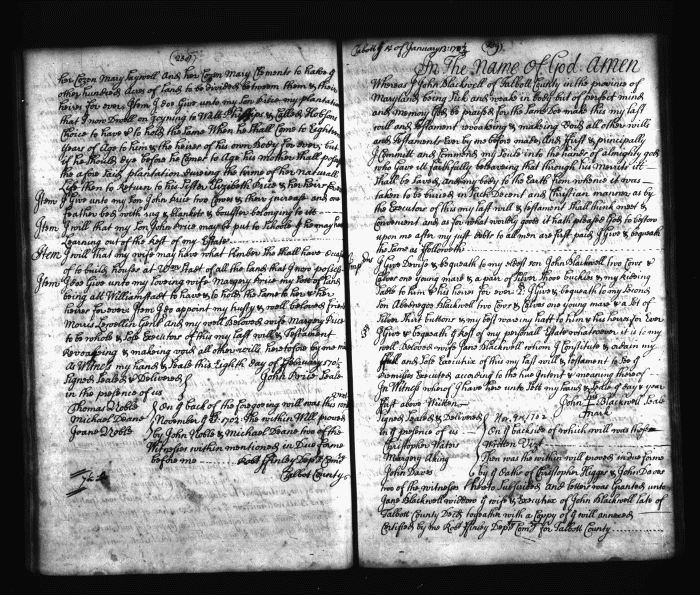 her Cozen Mary Saywell And her Cozen Mary Clements to have &
other hundred Acres of land to be divided between them & their
heires for ever Item I doe Give unto my Son Price my plantation
that I now Dwell on Joyning to Will Philips & Called Hobson
Choice to have & to hold the Same When he Shall Come to Eighteen
Years of Age to him & the heires of his own Body For ever, but
if he Should dye before he Comes to Age his Mother Shall possess
the afore Said plantation During the time of her Naturall
Life then to Return to his Sister Elizabeth Price & her heirs for
Item I Give unto my Son John Price two Cowes & their increase and one
Feather bed with rug & blankets & boulster belonging to itt
Item I will that my Son John Price may be put to Schoole if he may have
Learning out of the Rest of my Estate
Item I will that my wife may have what timber She Shall have occasion
of to build houses at Wm Stadt of all the land that I now possess
Item I doe Give unto my loveing wife Margery Price my Lott of land
being att William Stadt to have & to hold the Same to her & her
heires for ever Item I doe appoint my trusty & well beloved Friend
Morris Lewellin Gent and my well Beloved wife Margery Price
to be whole & Sole Executors of this my last will & Testament
Revoakeing & making void all other wills heretofore by me made
As Witness my hand & Seale this Eighth day of February 170½
Signed Sealed & Delivered John Price Seale
in the presence of us
Thomas Noble On ye back of the foregoing will was this
Michael Deane November ye 1702 The within Will proved
Joane Noble by John Noble & Michael Deane two of the
Witnesses within mentioned in Due forme
before me Robt Finley Dept Comd
Talbot County
Talbott ye of January
In The Name Of God Amen
Whereas I John Blackwell of Talbott County in the province of
Maryland being Sick and weak in body but of perfect mind
and memory God be praised for the Same Doe make this my last
will and testament revoaking & making void all other wills
and testaments Ever by me before made And ffirst & principally
I Commit and Commend my Soule into the hands of almighty god
who Gave it faithfully beleiveing that through his Merrits itt
Shall be Saved, and my body to the Earth from whence it was
taken to be buried in Such Decent and Christian manner as by
the Executors of this my last will & testament Shall think meet &
Convenient and as for what worldly goods it hath pleased God to bestow
upon me after my just debts to all men are first paid I Give & bequeath
the Same as Followeth
I Give Devise & bequeath to my Eldest Son John Blackwell two Cows &
Calves one young mare & a pair of Silver Shoe buckles & my rideing
Sadle to him & his heires for ever I Give & bequeath to my Second
Son Abednego Blackwell two Cows & Calves one young mare & a Sett of
Silver Shirt buttons & my best wearing hatt to him & his heires for Ever
I Give & bequeath ye Rest of my personall Estate whatsoever it is to my
well Beloved wife Jane Blackwell whom I Constitute & ordain my
full and Sole Executrix of this my last will & testament to See ye
premisses Executed according to the true Intent & meaning thereof
In Witness whereof I have here unto Sett my hand & Seale ye day & year
first above Written John Blackwell Seale
Signed Sealed & Delivered mark
in ye presence of us On ye backside of which will was those
Christopher Written Vizt
Margery Then was the within will proved in due forme
John Daves by ye Oaths of Christopher Higgs & John Daves
two of the witnesses there to Subscribed and letters was Granted unto
Jane Blackwell widdow ye wife & Executrix of John Blackwell late of
Talbott County Decd together with a Coppy of ye will annexed
Certified by me Robt Finley Dept Comd for Talbott County